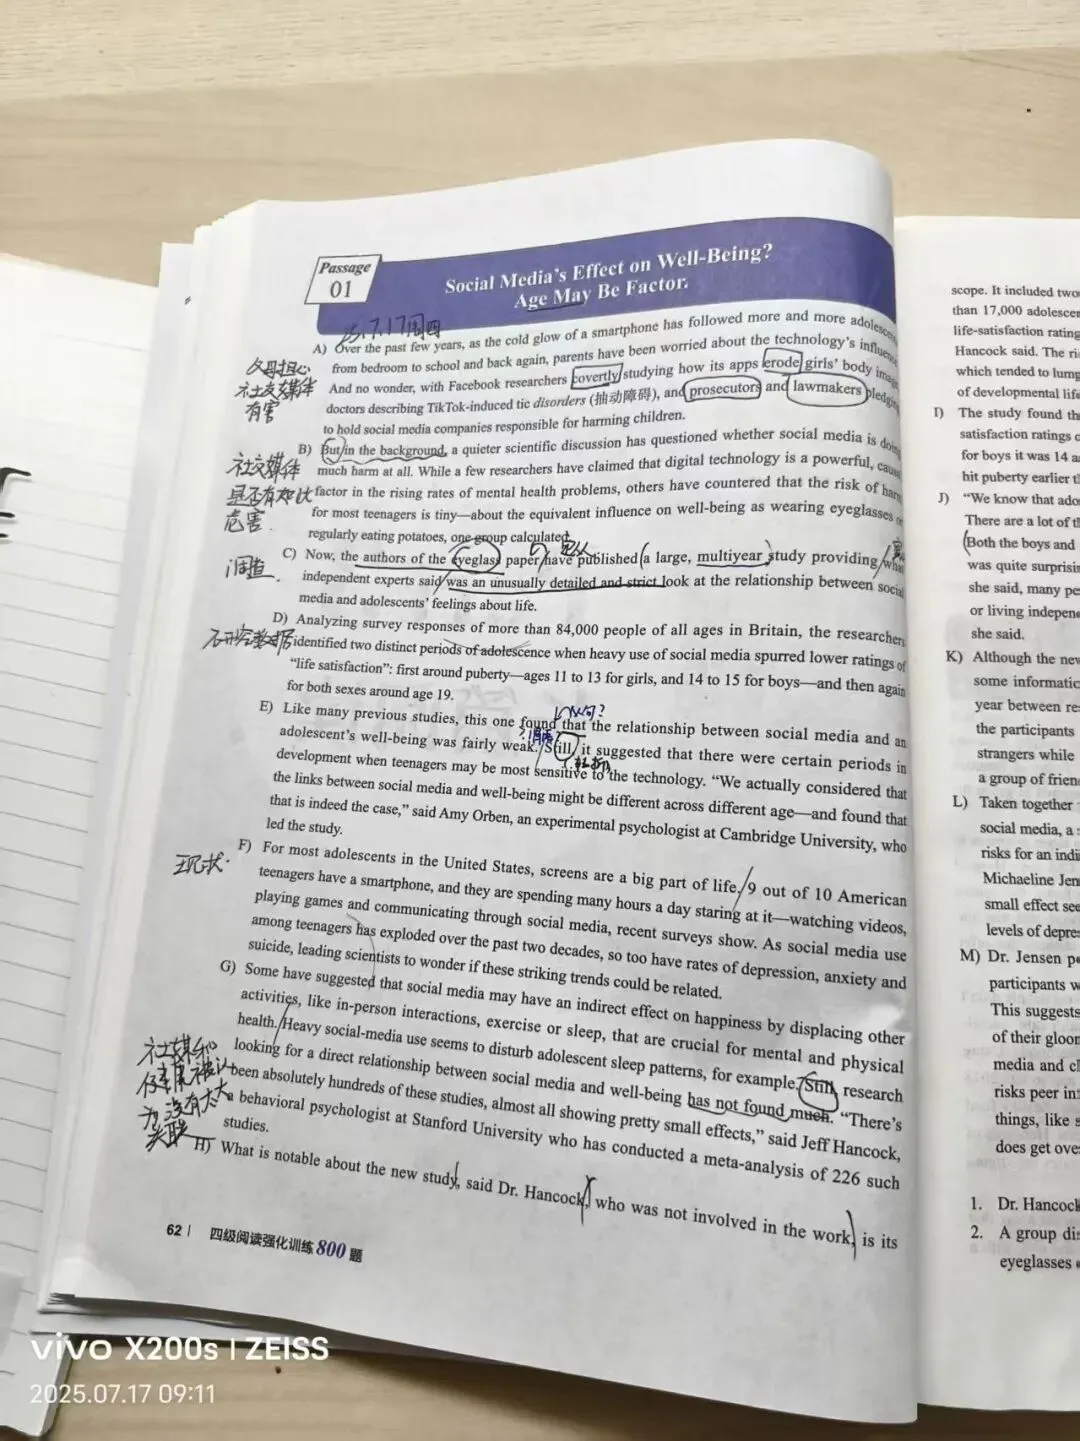 Passage
01
Social Media's Effect on Well-Being?
Age May Be Factor.
25.7.17周四
A) Over the past few years, as the cold glow of a smartphone has followed more and more adolescen
from bedroom to school and back again, parents have been worried about the technology's influenc
And no wonder, with Facebook researchers covertly studying how its apps erode girls' body ima
doctors describing TikTok-induced tic disorders (抽动障碍), and prosecutors and lawmakers pledgin
to hold social media companies responsible for harming children.
父母担心
社交媒体
有害
B) But in the background, a quieter scientific discussion has questioned whether social media is doin
much harm at all. While a few researchers have claimed that digital technology is a powerful, caus
factor in the rising rates of mental health problems, others have countered that the risk of harm
for most teenagers is tiny—about the equivalent influence on well-being as wearing eyeglasses o
regularly eating potatoes, one group calculated.
社交媒体
是否有如此
危害
C) Now, the authors of the eyeglass paper have published a large, multiyear study providing what
independent experts said was an unusually detailed and strict look at the relationship between social
media and adolescents' feelings about life.
调查
D) Analyzing survey responses of more than 84,000 people of all ages in Britain, the researchers
identified two distinct periods of adolescence when heavy use of social media spurred lower ratings of
"life satisfaction": first around puberty—ages 11 to 13 for girls, and 14 to 15 for boys—and then again
for both sexes around age 19.
研究数据
E) Like many previous studies, this one found that the relationship between social media and an
adolescent's well-being was fairly weak. Still, it suggested that there were certain periods in
development when teenagers may be most sensitive to the technology. "We actually considered that
the links between social media and well-being might be different across different age—and found that
that is indeed the case," said Amy Orben, an experimental psychologist at Cambridge University, who
led the study.
F) For most adolescents in the United States, screens are a big part of life. 9 out of 10 American
teenagers have a smartphone, and they are spending many hours a day staring at it—watching videos,
playing games and communicating through social media, recent surveys show. As social media use
among teenagers has exploded over the past two decades, so too have rates of depression, anxiety and
suicide, leading scientists to wonder if these striking trends could be related.
现状
G) Some have suggested that social media may have an indirect effect on happiness by displacing other
activities, like in-person interactions, exercise or sleep, that are crucial for mental and physical
health. Heavy social-media use seems to disturb adolescent sleep patterns, for example. Still, research
looking for a direct relationship between social media and well-being has not found much. "There's
been absolutely hundreds of these studies, almost all showing pretty small effects," said Jeff Hancock,
a behavioral psychologist at Stanford University who has conducted a meta-analysis of 226 such
studies.
社媒和
健康被认
为没有太大
关联
H) What is notable about the new study, said Dr. Hancock, who was not involved in the work, is its
62 | 四级阅读强化训练800题
scope. It included two
than 17,000 adolescen
life-satisfaction rating
Hancock said. The ri
which tended to lump
of developmental life
I) The study found th
satisfaction ratings o
for boys it was 14 a
hit puberty earlier t
J) "We know that ado
There are a lot of t
Both the boys and
was quite surprisin
she said, many pe
or living indepen
she said.
K) Although the new
some informatio
year between re
the participants
strangers while
a group of frien
L) Taken together
social media, a
risks for an indi
Michaeline Jen
small effect see
levels of depre
M) Dr. Jensen p
participants w
This suggests
of their gloor
media and cl
risks peer in
things, like s
does get ove
1. Dr. Hancock
2. A group di
eyeglasses
vivo X200s | ZEISS
2025.07.17 09:11